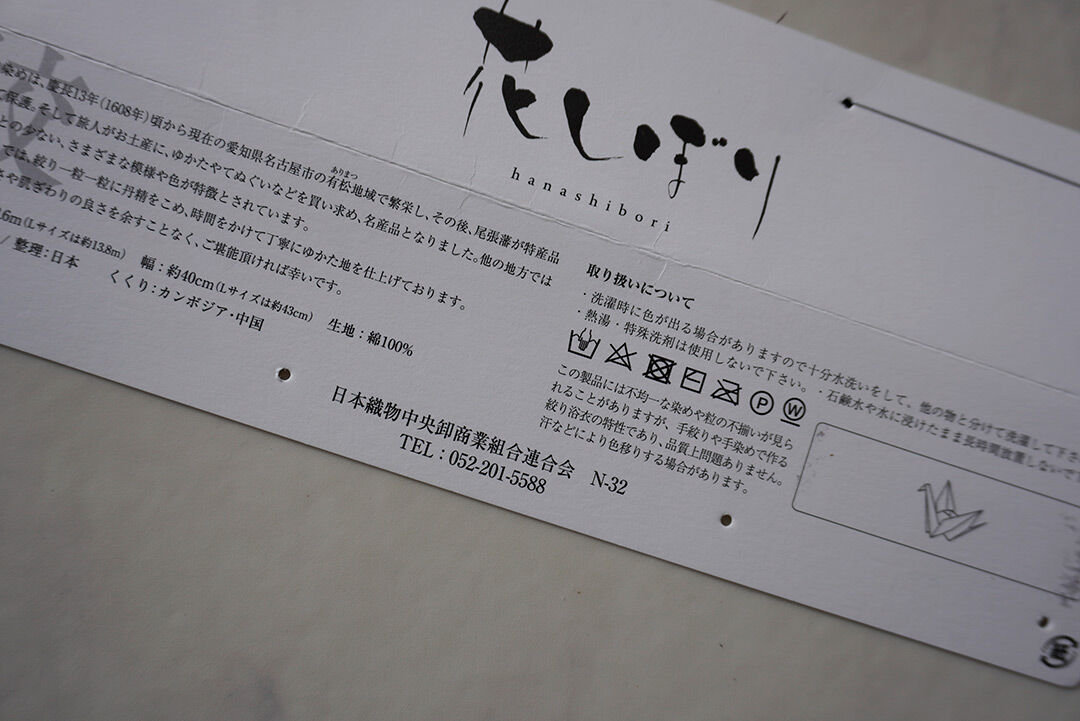 花しぼり
hanashibori
絞
染めは、慶長13年(1608年)頃から現在の愛知県名古屋市の有松地域で繁栄し、その後、尾張藩が特産品
ありまつ
て保護。そして旅人がお土産に、ゆかたやてぬぐいなどを買い求め、名産品となりました。他の地方では
との少ない、さまざまな模様や色が特徴とされています。
では、絞り一粒一粒に丹精をこめ、時間をかけて丁寧にゆかた地を仕上げております。
さや肌ざわりの良さを余すことなく、ご堪能頂ければ幸いです。
.6m(Lサイズは約13.8m) 幅:約40cm(Lサイズは約43cm) 生地:綿100%
/ 整理:日本 くくり:カンボジア・中国
日本織物中央卸商業組合連合会 N-32
TEL:052-201-5588
取り扱いについて
・洗濯時に色が出る場合がありますので十分水洗いをして、他の物と分けて洗濯して下さ
・熱湯・特殊洗剤は使用しないで下さい。・石鹸水や水に浸けたまま長時間放置しないで下
P W
この製品には不均一な染めや粒の不揃いが見ら
れることがありますが、手絞りや手染めで作る
絞り浴衣の特性であり、品質上問題ありません。
汗などにより色移りする場合があります。